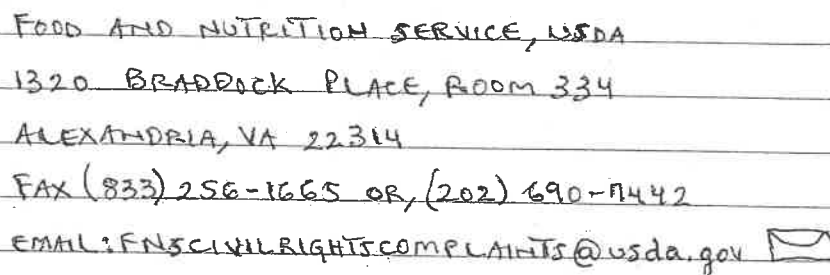 FOOD AND NUTRITION SERVICE, USDA
1320 BRADDOCK PLACE, ROOM 334
ALEXANDRIA, VA 22314
FAX (833) 256-1665 OR, (202) 690-7442
EMAIL: FNSCIVILRIGHTSCOMPLAINTS@usda.gov